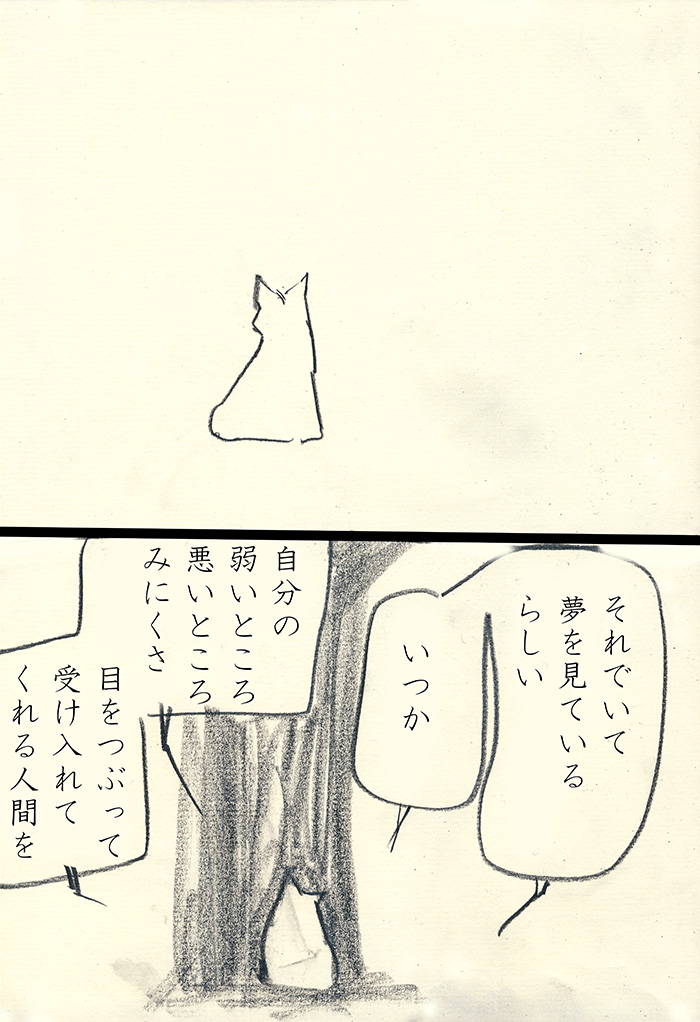 それでいて
夢を見ている
らしい
いつか
自分の
弱いところ
悪いところ
みにくさ
目をつぶって
受け入れて
くれる人間を